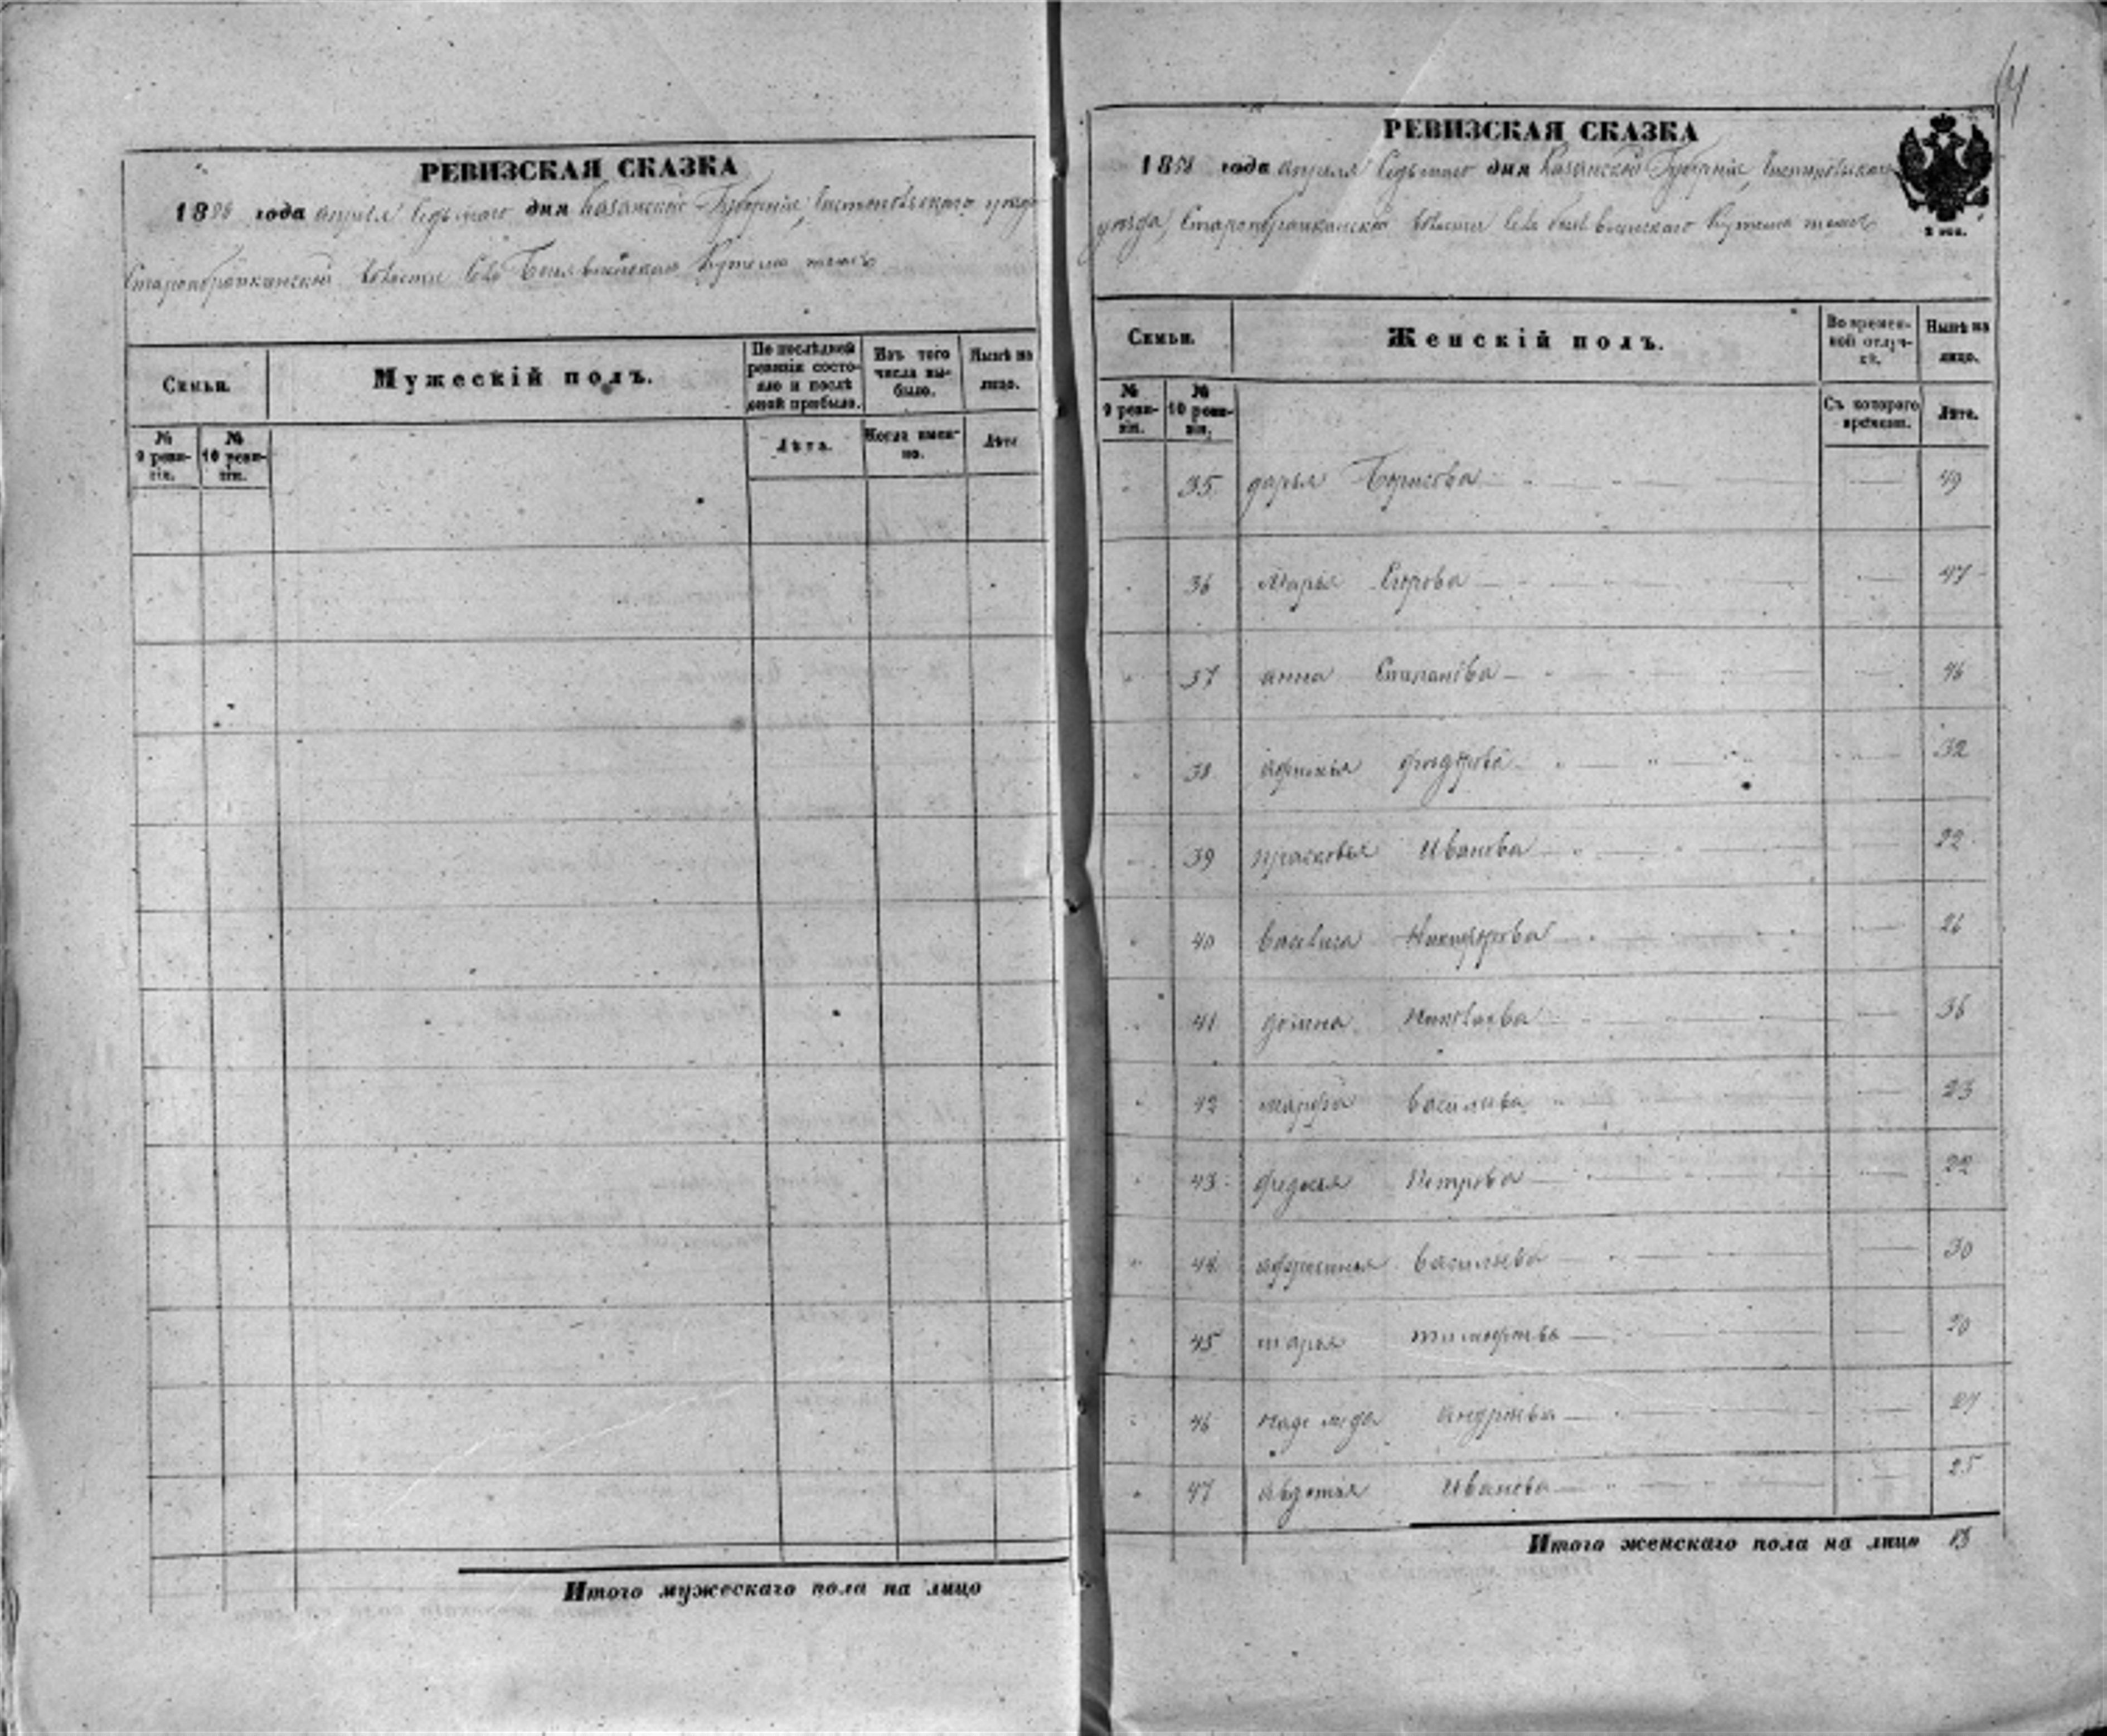 РЕВИЗСКАЯ СКАЗКА
1858 года апреля Седьмаго дня Казанской Губерніи, Чистопольского уезда
Старо волости Села Кутема тожъ
Семьи.
Мужескій полъ.
По послѣдней ревизіи состояло и послѣ оной прибыло.
Изъ того числа выбыло.
Нынѣ на лицо.
№ 9 ревизіи.
№ 10 ревизіи.
Лѣта.
Когда именно.
Лѣта
Итого мужескаго пола на лицо
РЕВИЗСКАЯ СКАЗКА
1858 года апреля Седьмаго дня Казанской Губерніи, Чистопольскаго
уезда, Старо волости Села Кутема тожъ
Семьи.
Женскій полъ.
Во временной отлучкѣ.
Нынѣ на лицо.
№ 9 ревизіи.
№ 10 ревизіи.
Съ котораго времени.
Лѣта.
35 дарья Борисова 49
36 Марья Егорова 47
37 анна Степанова 46
38 афимья 32
39 прасковья Иванова 22
40 василиса Никифорова 26
41 домна Николаева 36
42 марфа васильева 23
43 федосья Петрова 22
44 васильева 30
45 марья тимофеева 20
46 надежда андреева 27
47 авдотья Иванова 25
Итого женскаго пола на лицо 13